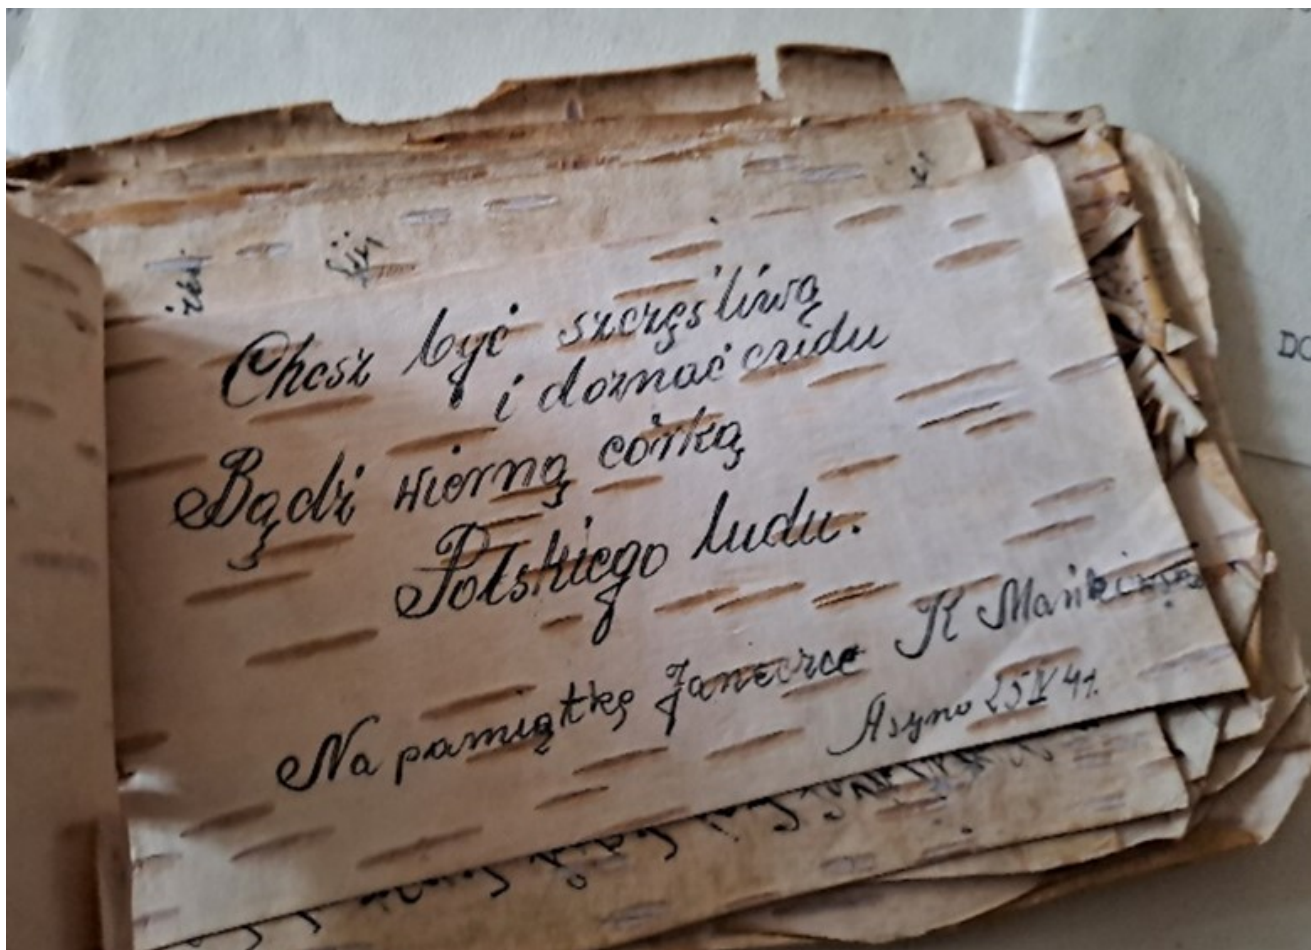 Chcsz być szczęśliwą
i doznać cudu
Bądź wierną córką
Polskiego ludu.
Na pamiątkę Janeczce K Mańkiewicz
Asyno 25 IV 41.
DO